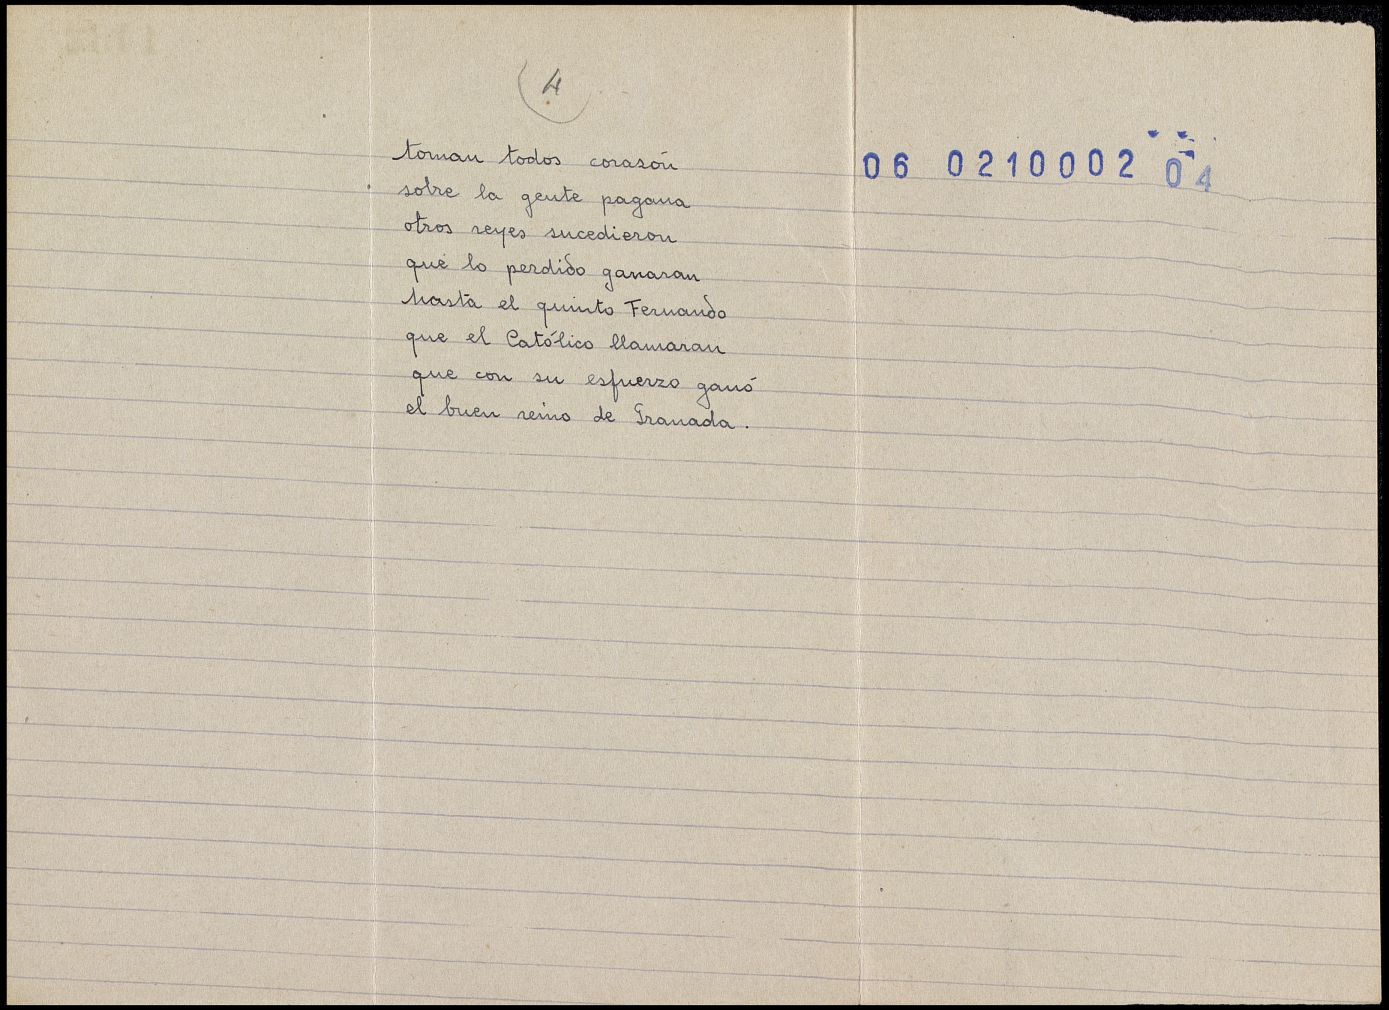 4
toman todos corasón
sobre la gente pagana
otros reyes sucedieron
qué lo perdido ganaran
hasta el quinto Fernando
que el Católico llamaran
que con su esfuerzo ganó
el buen reino de Granada.
06 0210002 04